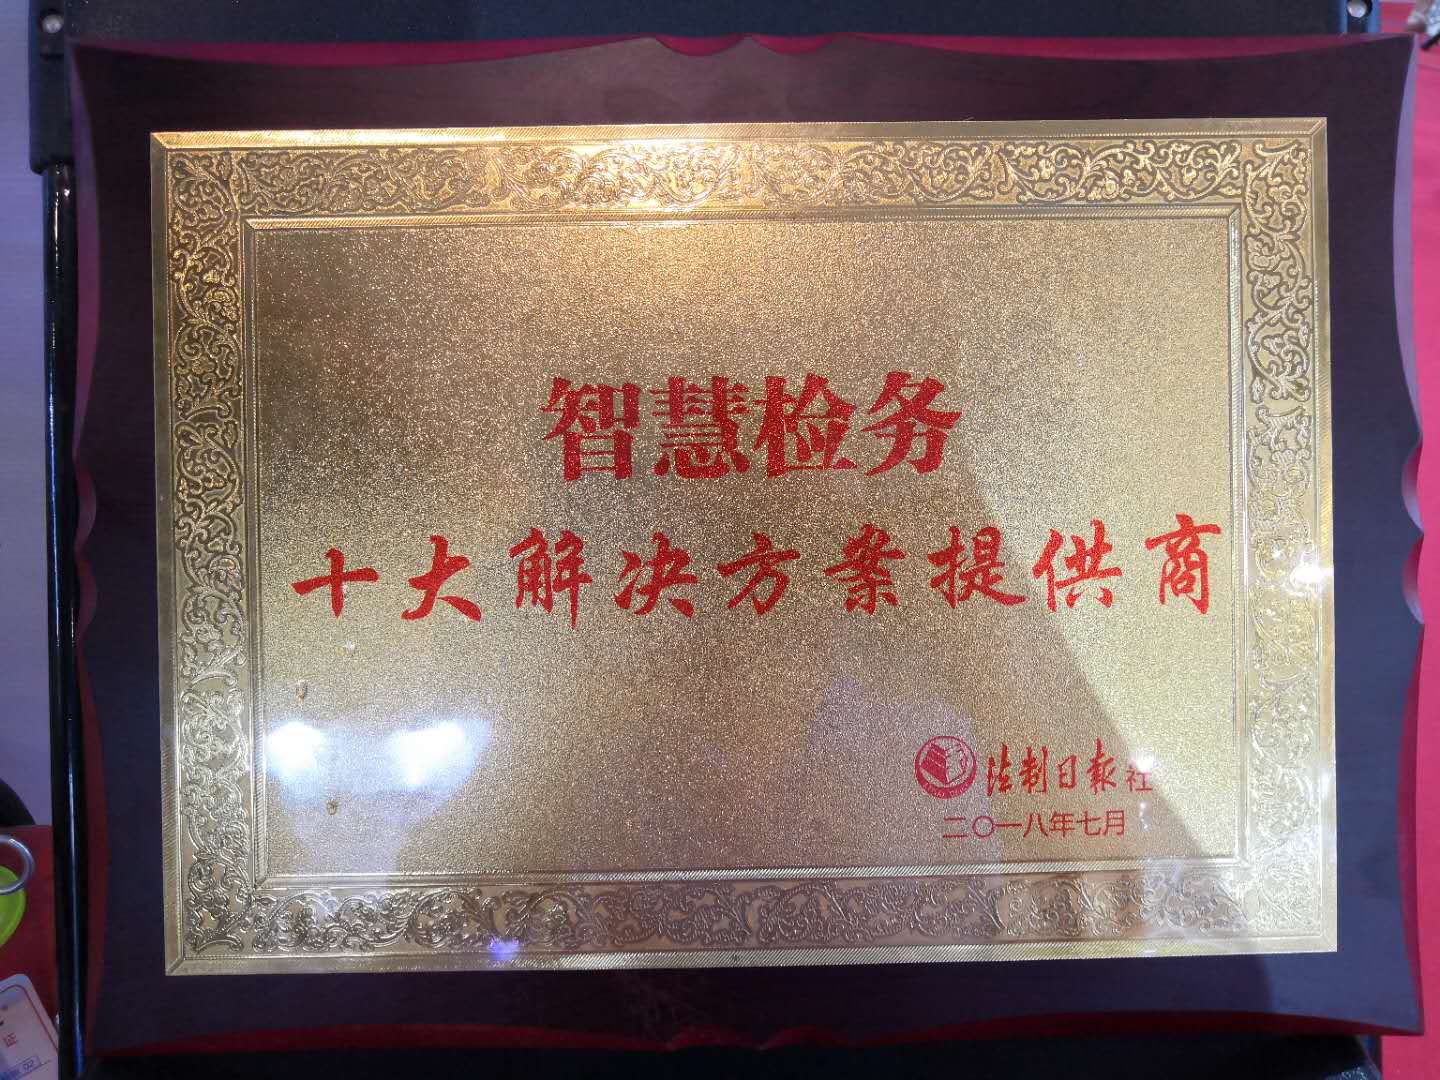 智慧检务
十大解决方案提供商
法制日报社
二〇一八年七月
证
02